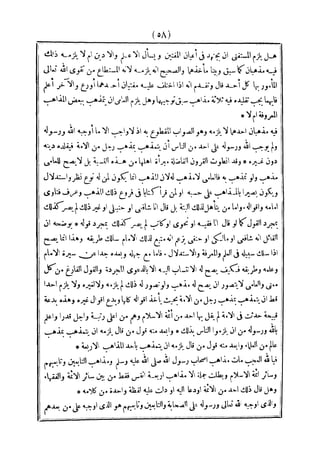 ( ٥٨ )
هل يلزم المستفتى ان يجتهد فى أعيان المفتين ويسأل الاعلم والادين ام لا يلزمه ذلك
فيه مذهبان كما سبق وبينا مأخذهما والصحيح انه يلزمه لانه المستطاع من تقوى الله تعالى
المأمور بها كل أحد قال وتقدم انه اذا اختلف عليه مفتيان أحدهما أورع والآخر أعلم
فأيهما يجب تقليده فيه ثلاثة مذاهب سبق توجيهها وهل يلزم العامى ان يتمذهب ببعض المذاهب
المعروفة ام لا *
فيه مذهبان احدهما لا يلزمه وهو الصواب المقطوع به اذ لا واجب الا ما أوجبه الله ورسوله
ولم يوجب الله ورسوله على احد من الناس أن يتمذهب بمذهب رجل من الامة فيقلده دينه
دون غيره * وقد انطوت القرون الفاضلة مبرأة اهلها من هذه النسبة بل لا يصح للعامى
مذهب ولو تمذهب به فالعامى لا مذهب له لان المذهب انما يكون لمن له نوع نظر واستدلال
ويكون بصيرا بالمذاهب على حسبه او لمن قرأ كتابا فى فروع ذلك المذهب وعرف فتاوى
امامه واقواله واما من لم يتأهل لذلك البتة بل قال انا شافعى او حنبلى او غير ذلك لم يصر كذلك
بمجرد القول كما لو قال انا فقيه او نحوى او كاتب لم يصر كذلك بمجرد قوله * يوضحه ان
القائل انه شافعى او مالكى او حنفى يزعم انه متبع لذلك الامام سالك طريقه وهذا انما يصح
اذا سلك سبيله فى العلم والمعرفة والاستدلال * فاما مع جهله وبعده جدا عن سيرة الامام
وعلمه وطريقه فكيف يصح له الانتساب اليه الا بالدعوى المجردة والقول الفارغ من كل
معنى والعامى لا يتصور ان يصح له مذهب ولو تصور له ذلك لم يلزمه ولا لغيره ولا يلزم احدا
قط ان يتمذهب بمذهب رجل من الامة بحيث يأخذ اقواله كلها ويدع اقوال غيره وهذه بدعة
قبيحة حدثت فى الامة لم يقل بها احد من أئمة الاسلام وهم من اعلى رتبة واجل قدرا واعلم
بالله ورسوله من ان يلزموا الناس بذلك * وابعد منه قول من قال يلزمه ان يتمذهب بمذهب
عالم من العلماء وابعد منه قول من قال يلزمه ان يتمذهب بأحد المذاهب الاربعة *
فيا لله العجب ماتت مذاهب اصحاب رسول الله صلى الله عليه وسلم ومذاهب التابعين وتابعيهم
وسائر ائمة الاسلام وبطلت جملة الا مذاهب اربعة انفس فقط من بين سائر الائمة والفقهاء
وهل قال ذلك احد من الائمة او دعا اليه او دلت عليه لفظة واحدة من كلامه *
والذى اوجبه الله تعالى ورسوله على الصحابة والتابعين وتابعيهم هو الذى اوجبه على من بعدهم